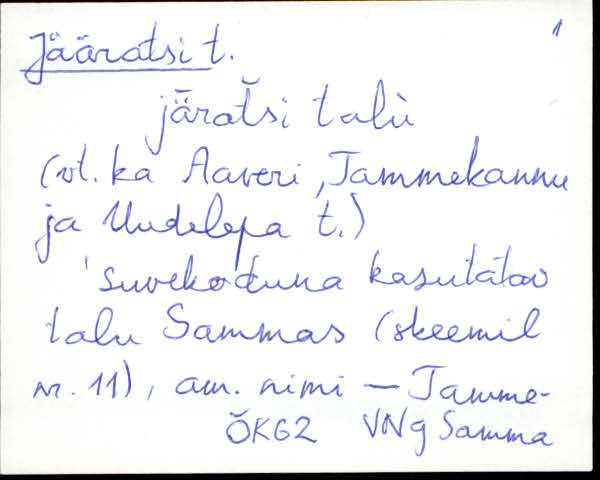 1
Jääratsi t.
järatsi talù
(vt. ka Aaveri, Tammekannu
ja Uudelepa t.)
suvekoduna kasutatav
talu Sammas (skeemil
nr. 11), am. nimi — Tamme-
ÕKG2 VNg Samma